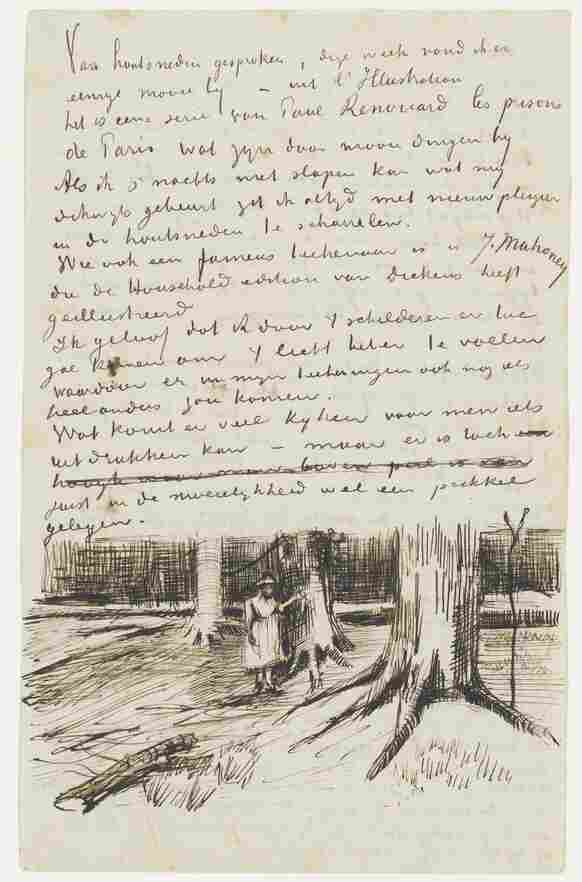 Van houtsneden gesproken, deze week vond ik er
eenige mooie bij – uit l'Illustration
het is eene serie van Paul Renouard les prisons
de Paris Wat zijn daar mooie dingen bij
Als ik 's nachts niet slapen kan wat mij
dikwijls gebeurt zit ik altijd met nieuw pleizier
in de houtsneden te scharrelen.
Wie ook een famous teekenaar is is J. Mahoney
die de Household edition van Dickens heeft
geillustreerd
Ik geloof dat ik door 't schilderen er toe
zal komen om 't licht beter te voelen
waardoor er in mijn teekeningen ook nog iets
heel anders zou komen.
Wat komt er veel kijken voor men iets
uitdrukken kan – maar er is toch een
juist in de moeielijkheid wel een prikkel
gelegen.